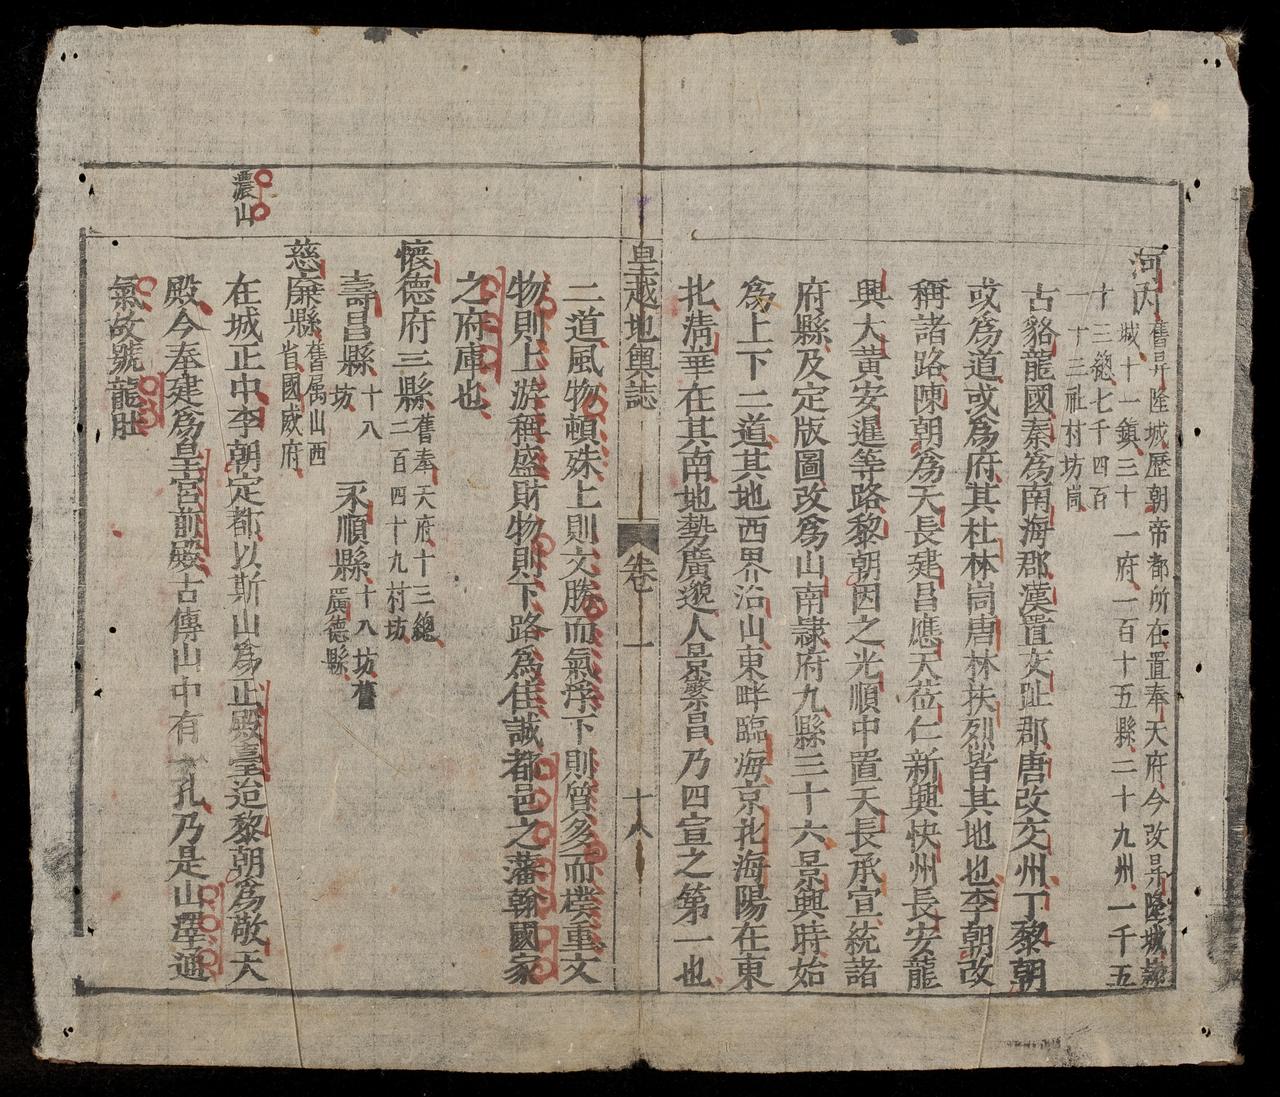 河內
舊昇隆城歷朝帝都所在置奉天府今改昇隆城
城十一鎮三十一府一百十五縣二十九州一千五
十三總七千四百
一十三社村坊峝
古貉龍國秦爲南海郡漢置交趾郡唐改交州丁黎朝
或爲道或爲府其杜林峝唐林扶烈皆其地也李朝改
稱諸路陳朝爲天長建昌應天莅仁新興快州長安龍
興大黄安暹等路黎朝因之光順中置天長承宣統諸
府縣及定版圖改爲山南隷府九縣三十六景興時始
爲上下二道其地西界沿山東畔臨海京北海陽在東
北淸華在其南地勢廣邈人景繁昌乃四宣之第一也
皇越地輿誌 卷一 十八
二道風物頓殊上則文勝而氣浮下則質多而樸重文
物則上游稱盛財物則下路爲佳誠都邑之藩翰國家
之府庫也
懷德府三縣
舊奉天府十三總
二百四十九村坊
壽昌縣
十八
坊
永順縣
十八坊舊
廣德縣
慈廉縣
舊属山西
省國威府
濃山
在城正中李朝定都以斯山爲正殿臺迨黎朝爲敬天
殿今奉建爲皇宮前殿古傳山中有一孔乃是山澤通
氣故號龍肚